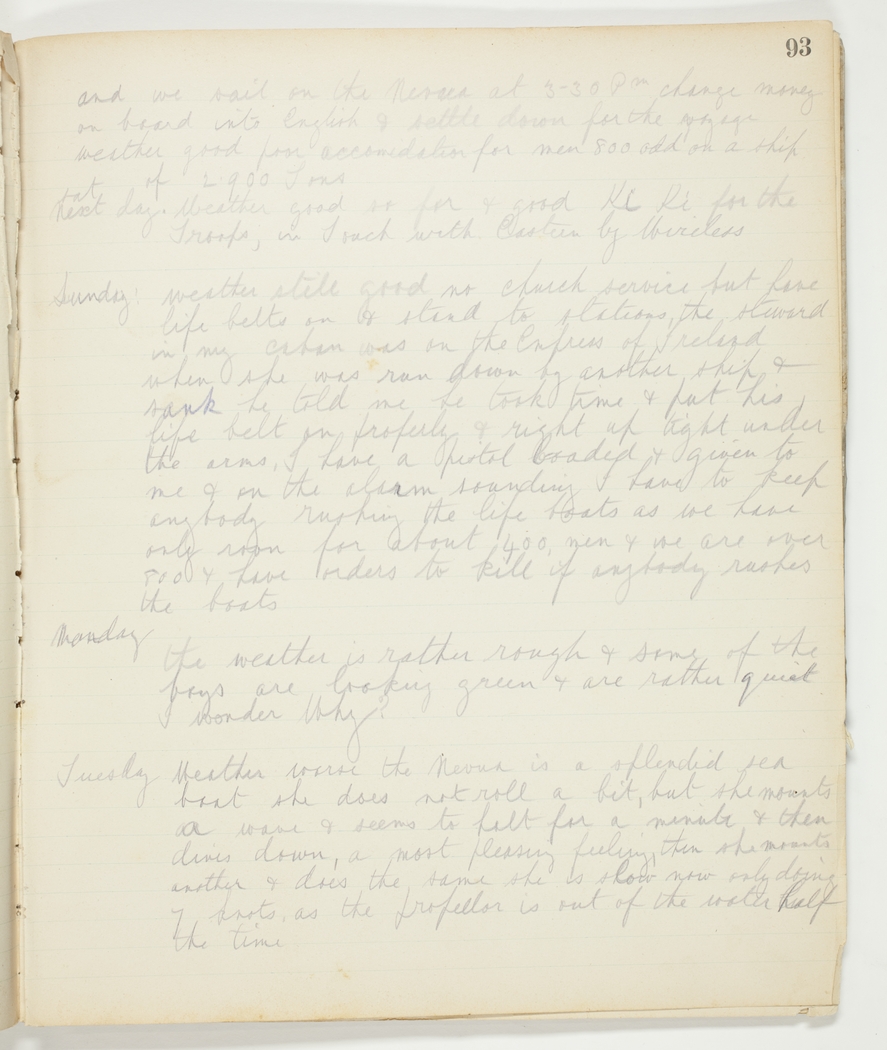 93
and we sail on the Nevasa at 3-30 Pm change money
on board into English & settle down for the voyage
weather good poor accomidation for men 800 odd on a ship
of 2.900 Tons
sat
next day. Weather good so far & good Ki Ki for the
Troops, in Touch with by Wireless
Sunday: weather still good no church service but have
life belts on & stand to stations, the steward
in my caban was on the Empress of Ireland
when she was run down by another ship &
sank he told me he took time & put his
life belt on properly & right up tight under
the arms, I have a pistol loaded & given to
me & on the alarm sounding I have to keep
anybody rushing the life boats as we have
only room for about 400, men & we are over
800 & have orders to kill if anybody rushes
the boats
Monday
the weather is rather rough & some of the
boys are looking green & are rather quiet
I wonder Why?
Tuesday Weather worse the is a splendid sea
boat she does not roll a bit, but she mounts
a wave & seems to halt for a minute & then
dives down, a most pleasing feeling, then she mounts
another & does the same she is slow now only doing
7 knots, as the propellor is out of the water half
the time